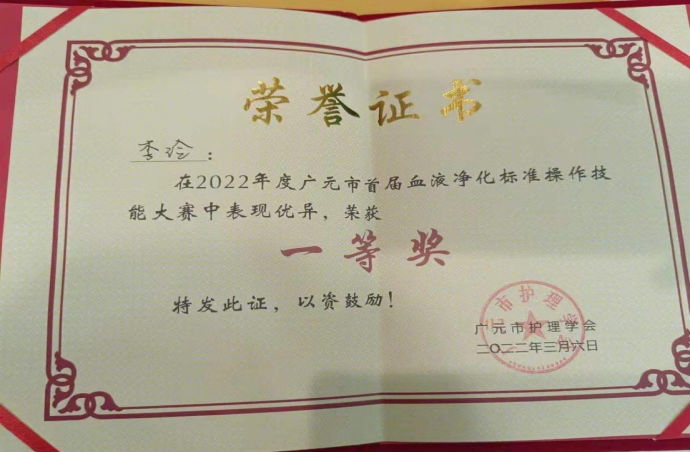 荣誉证书
李玲：
在2022年度广元市首届血液净化标准操作技
能大赛中表现优异，荣获
一等奖
特发此证，以资鼓励！
广元市护理学会
二〇二二年三月六日